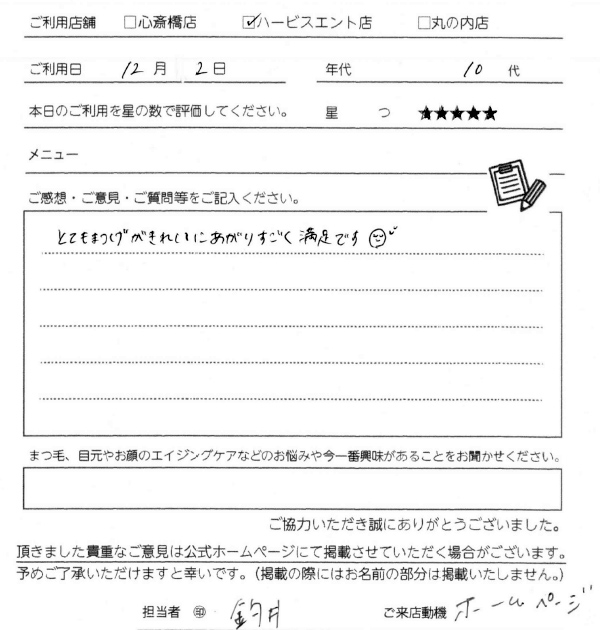 ご利用店舗 □心斎橋店 ☑ハービスエント店 □丸の内店
ご利用日 12月 2日 年代 10代
本日のご利用を星の数で評価してください。 星 つ ★★★★★
メニュー
ご感想・ご意見・ご質問等をご記入ください。
とてもまつげがきれいにあがりすごく満足です
まつ毛、目元やお顔のエイジングケアなどのお悩みや今一番興味があることをお聞かせください。
ご協力いただき誠にありがとうございました。
頂きました貴重なご意見は公式ホームページにて掲載させていただく場合がございます。
予めご了承いただけますと幸いです。(掲載の際にはお名前の部分は掲載いたしません。)
担当者 ㊞ 釣井 ご来店動機 ホームページ